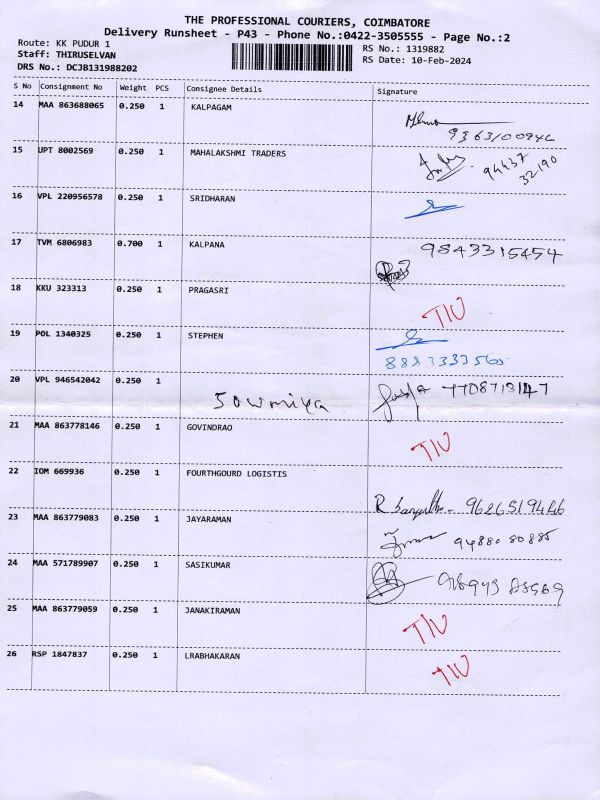 THE PROFESSIONAL COURIERS, COIMBATORE
Delivery Runsheet - P43 - Phone No.:0422-3505555 - Page No.:2
Route: KK PUDUR 1
RS No.: 1319882
Staff: THIRUSELVAN
RS Date: 10-Feb-2024
DRS No.: DCJB131988202
S No Consignment No Weight PCS Consignee Details Signature
14 MAA 863688065 0.250 1 KALPAGAM
15 UPT 8002569 0.250 1 MAHALAKSHMI TRADERS 94437
32190
16 VPL 220956578 0.250 1 SRIDHARAN
17 TVM 6806983 0.700 1 KALPANA 9843315454
18 KKU 323313 0.250 1 PRAGASRI TIU
19 POL 1340325 0.250 1 STEPHEN
20 VPL 946542042 0.250 1 Sowmiya 7708713147
21 MAA 863778146 0.250 1 GOVINDRAO TIU
22 IOM 669936 0.250 1 FOURTHGOURD LOGISTIS
9626519446
23 MAA 863779083 0.250 1 JAYARAMAN 94880 80885
24 MAA 571789907 0.250 1 SASIKUMAR
25 MAA 863779059 0.250 1 JANAKIRAMAN TIU
26 RSP 1847837 0.250 1 LRABHAKARAN TIU